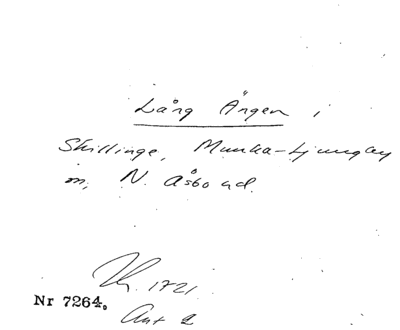 Lång Ängen i
Skillinge, Munka-Ljungby
m, N. Åsbo hd.
1721.
Nr 7264.
Ant 2